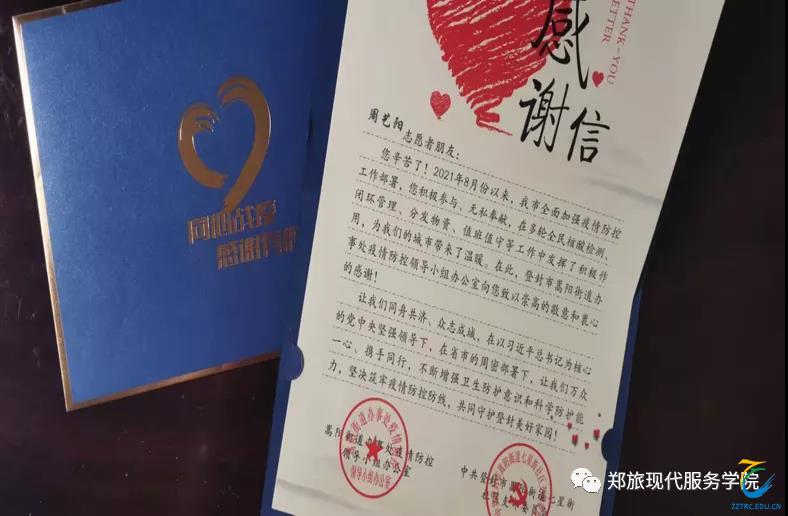 同心战疫
感谢有
THANK-YOU
LETTER
感谢信
周艺阳
志愿者朋友:
您辛苦了!2021年8月份以来,我市全面加强疫情防控
工作部署,您积极参与、无私奉献,在多轮全民核酸检测、
闭环管理、分发物资、值班值守等工作中发挥了积极作
用,为我们的城市带来了温暖。在此,登封市嵩阳街道办
事处疫情防控领导小组办公室向您致以崇高的敬意和衷心
的感谢!
让我们同舟共济、众志成城,在以习近平总书记为核心
的党中央坚强领导下,在省市的周密部署下,让我们万众
一心、携手同行,不断增强卫生防护意识和科学防护能
力,坚决筑牢疫情防控防线,共同守护登封美好家园!
嵩阳街道办事处疫情防控
领导小组办公室
领导小组办公室
中共登封市嵩阳街道七星街
郑旅现代服务学院
ZZTRC.EDU.CN